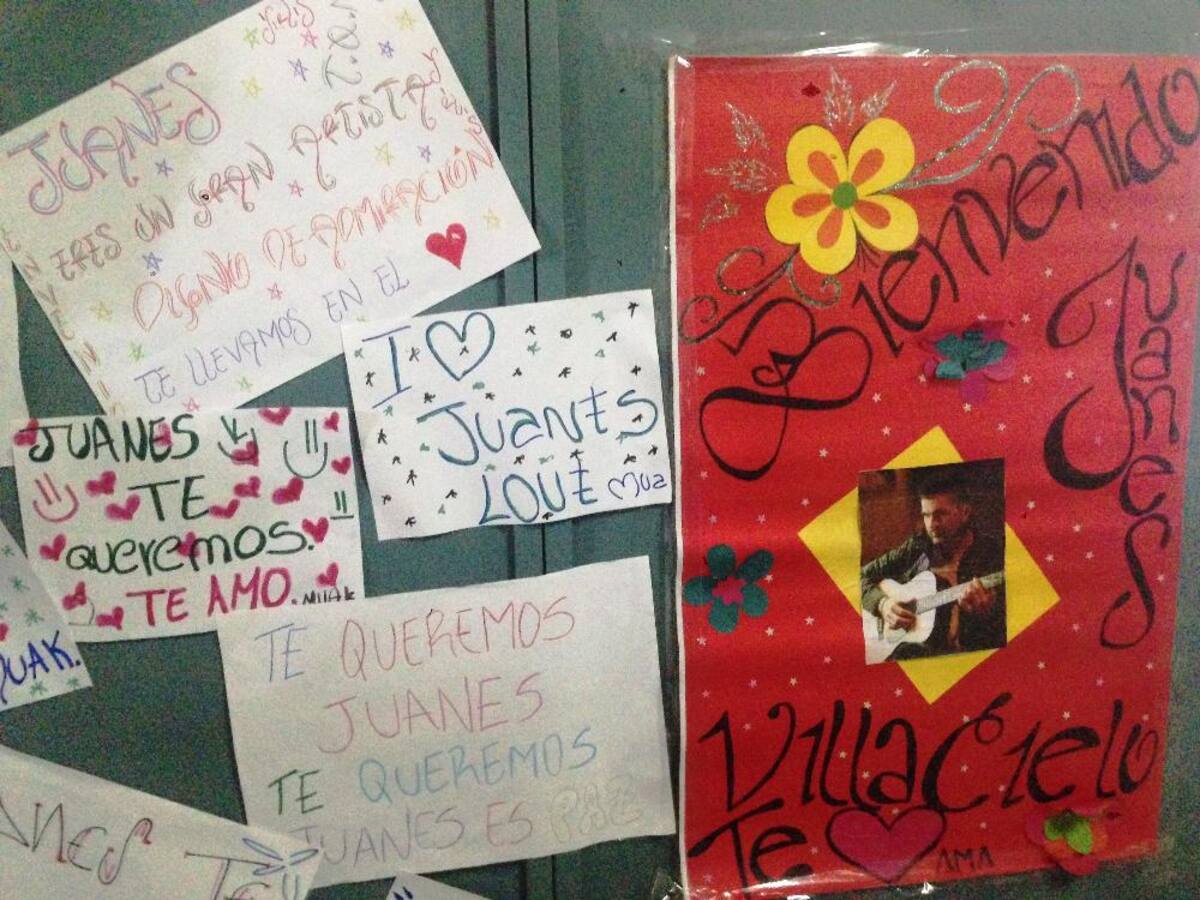 JUANES
ERES UN GRAN ARTISTA
DIGNO DE ADMIRACIÓN
TE LLEVAMOS EN EL
I
JuanEs
LOVE MUA
JUANES
TE
queremos.
TE AMO. MUAK
UAK.
TE QUEREMOS
JUANES
TE QUEREMOS
JUANES ES PAZ
anes
Te
Bienvenido
Juanes
Villa Cielo
Te AMA